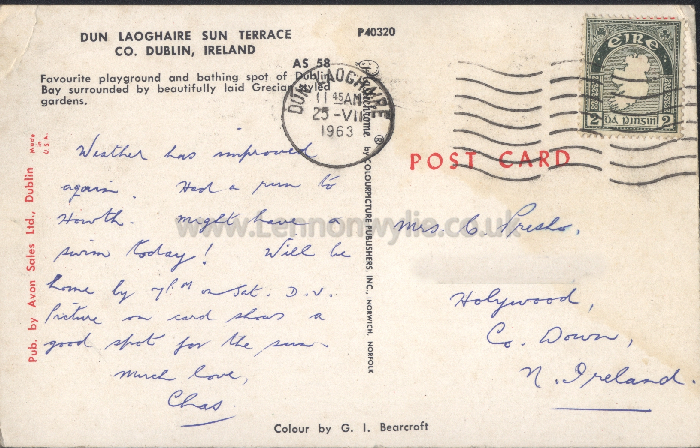 DUN LAOGHAIRE SUN TERRACE
CO. DUBLIN, IRELAND
P40320
AS 58
Favourite playground and bathing spot of Dublin
Bay surrounded by beautifully laid Grecian styled
gardens.
DUN LAOGHAIRE
11 45AM
25-VII
1963
EIRE
2 DÁ PINGIN 2
POST CARD
Made in U.S.A.
Pub. by Avon Sales Ltd., Dublin
by COLOURPICTURE PUBLISHERS, INC., NORWICH, NORFOLK
Weather has improved
again. Had a run to
Howth. Might have a
swim today! Will be
home by 7 p.m on Sat. D.V.
Picture on card shows a
good spot for the sun
Much love,
Chas
Mrs C Presho,
Holywood,
Co. Down,
N. Ireland.
www.Lennonwylie.co.uk
Colour by G. I. Bearcroft